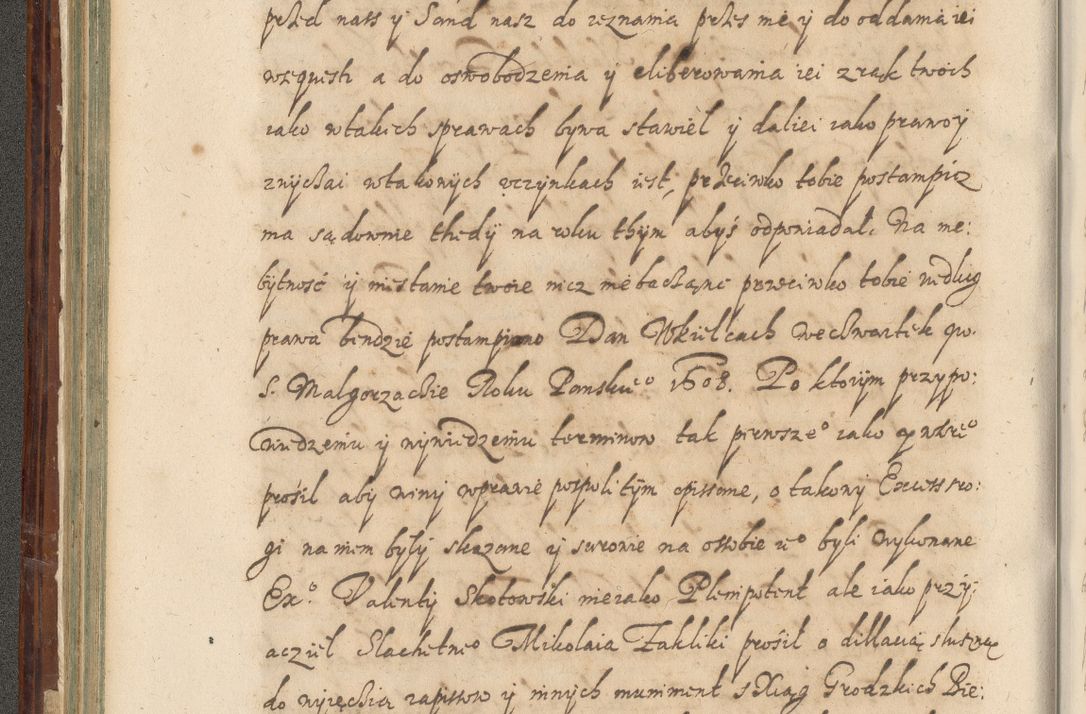 przed nass y Sand nasz do zeznania przes mię y do oddania iei
wzquesti a do oswobodzenia y eliberowania iei z rąk twoich
iako wtakich sprawach bywa stawieł y daliei iako prawo y
znyczai wtakowych vczynkach iest, przeciwko tobie postampicz
ma sądownie thedy na roku thym abyś odpowiadał. Na nie:
bytność y niestanie twoie nicz niebacząnc przeciwko tobie wedlug
prawa bendzie postampiono Dan Wkielcach we czwartek po
S. Malgorzacie Roku Pansku<sup>eo</sup> 1608. Po ktorym przypo:
wiedzeniu y wywiedzeniu terminow tak pierwsze<sup>o</sup> iako
prosił aby winy wprawie pospolitym opissone, o takowy Excess sro:
gi na niem były skazane y surowie na ossobie ie<sup>o</sup> byli wykonane
Ex<sup>o</sup>. Valenty Skotowski nie iako Plenipotent ale iako przy:
aczieł Slachetne<sup>o</sup> Mikolaia Zakliki prosił o dillacią sluszną
do wyięcia zapissow y innych muniment s Xiąg Grodzkich Bie: